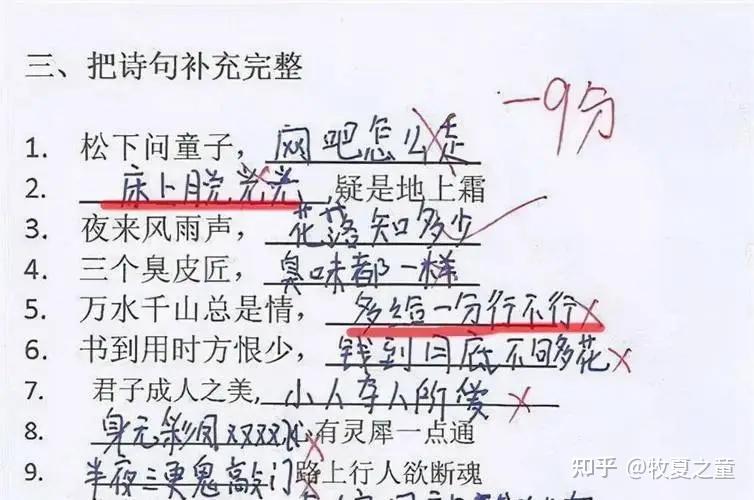 三、把诗句补充完整
-9分
1. 松下问童子，网吧怎么走
2. 床上脱光光，疑是地上霜
3. 夜来风雨声，花落知多少
4. 三个臭皮匠，臭味都一样
5. 万水千山总是情，多给一分行不行
6. 书到用时方恨少，钱到月底不够多花
7. 君子成人之美，小人夺人所爱
8. 身无彩凤双双飞心有灵犀一点通
9. 半夜三更鬼敲门路上行人欲断魂
知乎 @牧夏之童